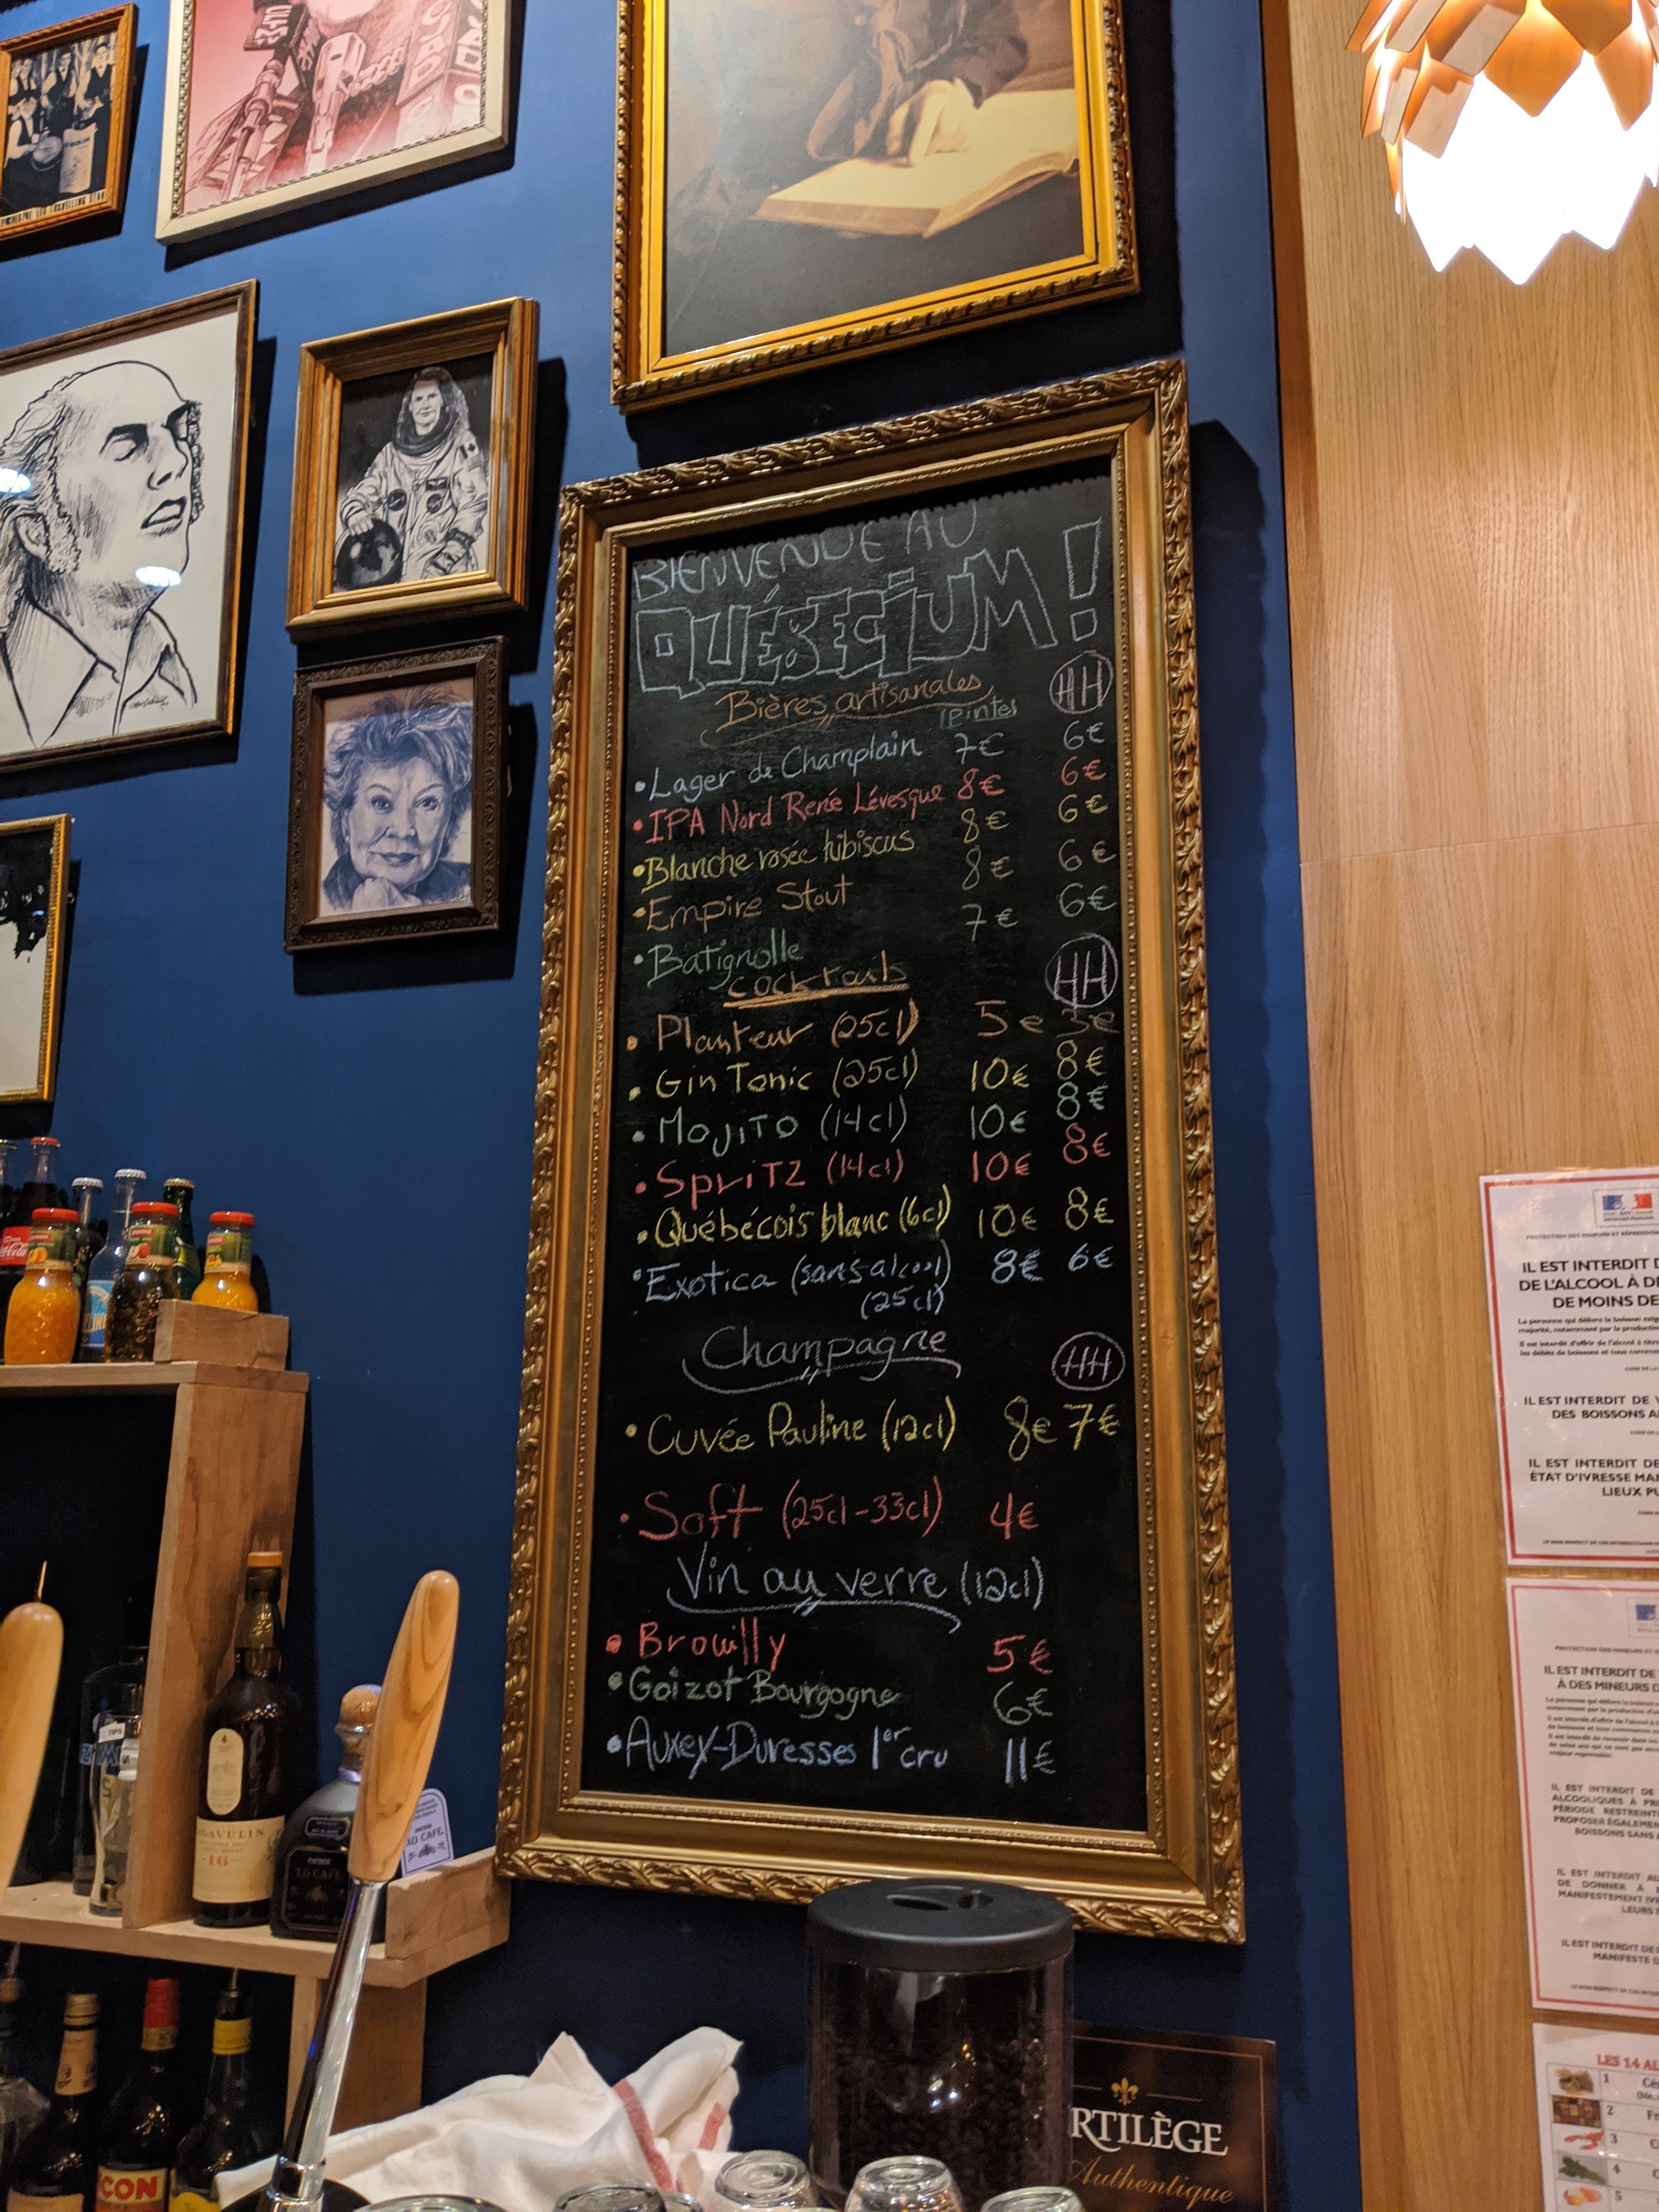 BIENVENUE AU
QUÉBECIUM!
Bières artisanales
Pintes
HH
•Lager de Champlain 7€ 6€
•IPA Nord René Lévesque 8€ 6€
•Blanche rosée hibiscus 8€ 6€
•Empire Stout 8€ 6€
•Batignolle 7€ 6€
cocktails HH
• Planteur (25cl) 5€
• Gin Tonic (25cl) 10€ 8€
• MOJITO (14cl) 10€ 8€
• SpriTZ (14cl) 10€ 8€
• Québécois blanc (6cl) 10€ 8€
• Exotica (sans alcool) 8€ 6€
(25cl)
Champagne HH
• Cuvée Pauline (12cl) 8€ 7€
• Soft (25cl-33cl) 4€
Vin au verre (12cl)
• Brouilly 5€
• Goizot Bourgogne 6€
• Auxey-Duresses 1er cru 11€
IL EST INTERDIT
DE L'ALCOOL À
DE MOINS DE
IL EST INTERDIT DE
DES BOISSONS
IL EST INTERDIT DE
ÉTAT D'IVRESSE
LIEUX
IL EST INTERDIT DE
À DES MINEURS
IL EST INTERDIT DE
ALCOOLIQUES À
PÉRIODE
PROPOSER ÉGALEMENT
BOISSONS SANS
IL EST INTERDIT
DE DONNER À
MANIFESTEMENT
LEURS
IL EST INTERDIT
MANIFESTE
LES 14
1
2
3
4
5
TIPS
16
XO CAFE
XO CAFE
CON
RTILÈGE
Authentique